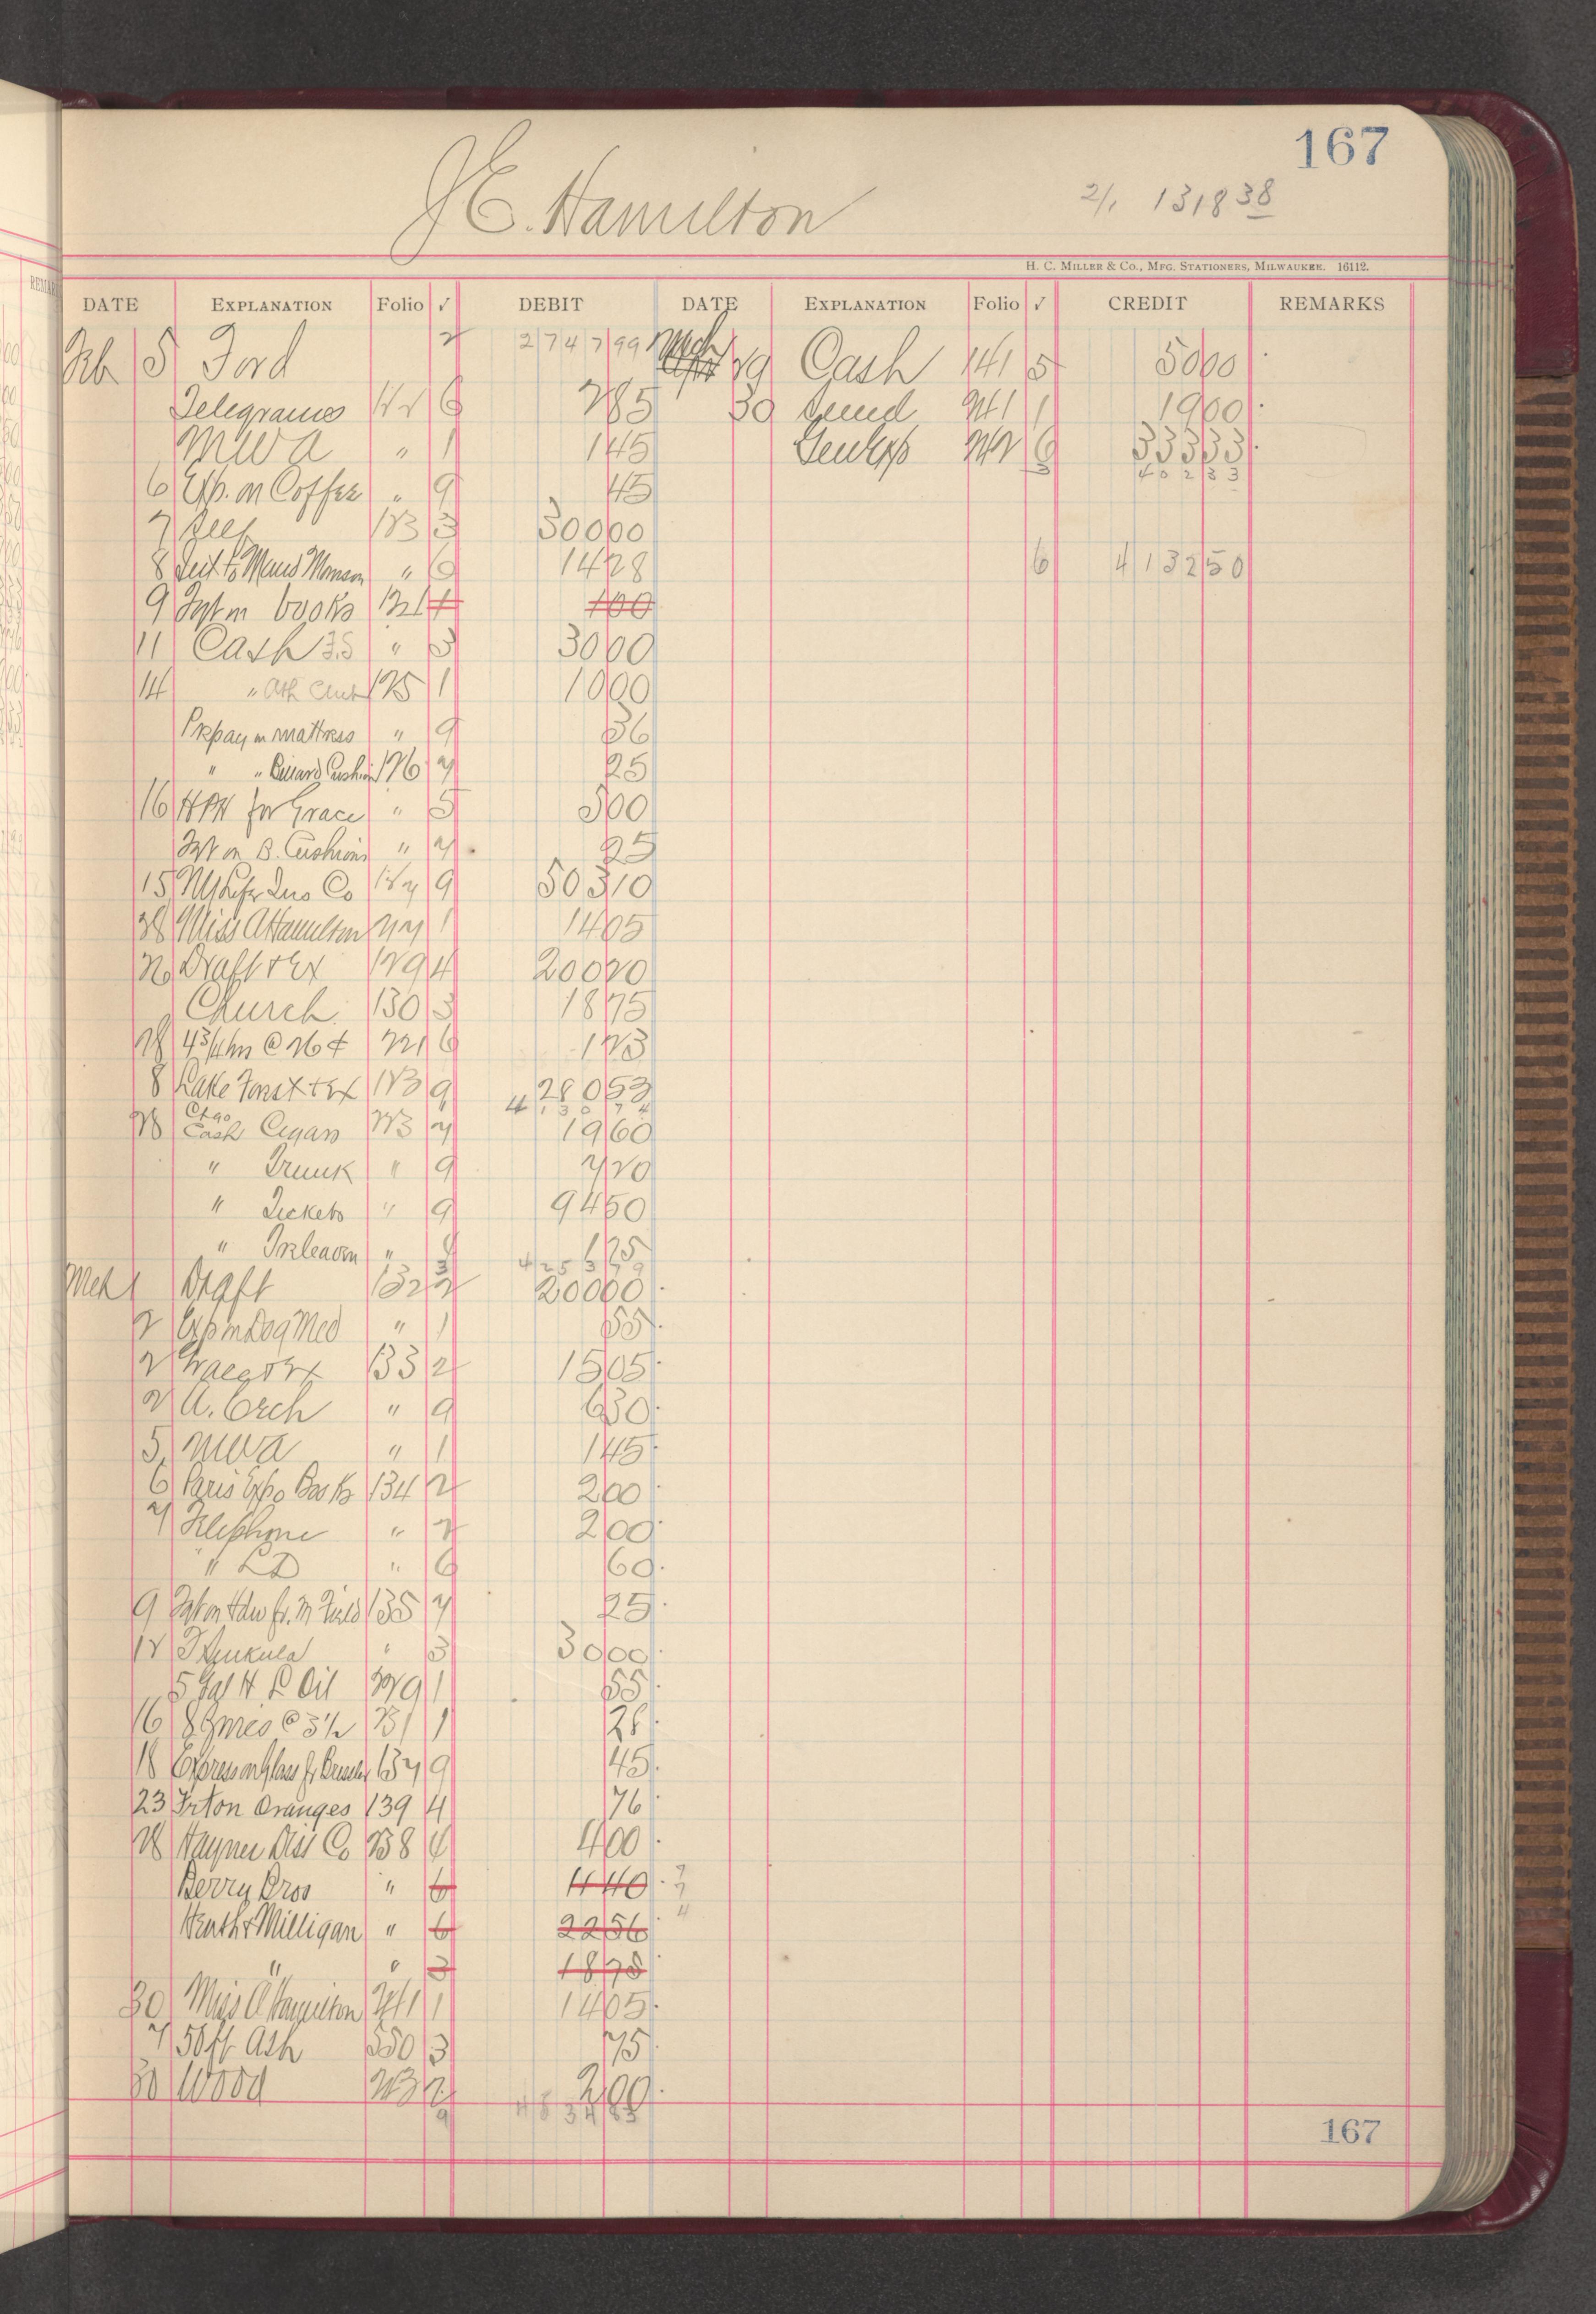 167
J E. Hamilton
2/1 1318 38
H. C. MILLER & CO., MFG. STATIONERS, MILWAUKEE. 16112.
DATE EXPLANATION Folio ✓ DEBIT DATE EXPLANATION Folio ✓ CREDIT REMARKS
Feb 5 Ford 2 2747 99 Mch 29 Cash 141 5 50 00
Telegrams 122 6 2 85 30 241 1 19 00
MWA " 1 1 45 242 6 333 33
402 33
6 Exp. on Coffee " 9 45
7 123 3 300 00
8 to Maud Monson " 6 14 28 6 4132 50
9 Frt on books 1 00
11 Cash 35 " 3 30 00
14 " Ath Club 125 1 10 00
Prepay on mattress " 9 36
" " Billiard Cushion 126 7 25
16 for Grace " 5 5 00
Frt on B. Cushions " 7 25
15 NY Life Ins Co 127 9 503 10
28 Miss A Hamilton 227 1 14 05
26 Draft + Ex 129 4 200 20
Church 130 3 18 75
28 4 3/4 hrs @ 26 ¢ 221 6 1 23
8 Lake Forest + Ex 123 9 280 53
4130 74
28 Chgo Cash Cigars 223 7 19 60
" Trunk " 9 7 20
" Tickets " 9 94 50
" " 1 75
4253 79
Mch 1 Draft 132 2 200 00
2 Exp on Dog Med " 1 55
2 133 2 15 05
2 A. Orch " 9 6 30
5 MWA " 1 1 45
6 Paris Expo Books 134 2 2 00
7 Telephone " 2 2 00
" LD " 6 60
9 Frt on fr. M Field 135 7 25
12 " 3 30 00
5 Gal H L Oil 229 1 55
16 @ 3 1/2 231 1 28
18 Express on Glass fr 137 9 45
23 Frt on Oranges 139 4 76
28 Hayner Dist Co 238 4 4 00
Berry Bros " 6 4 40
Heath & Milligan " 6 22 56
" " 3 18 75
30 Miss A Hamilton 241 1 14 05
7 50 ft Ash 550 3 75
30 Wood 2 00
4534 83
167